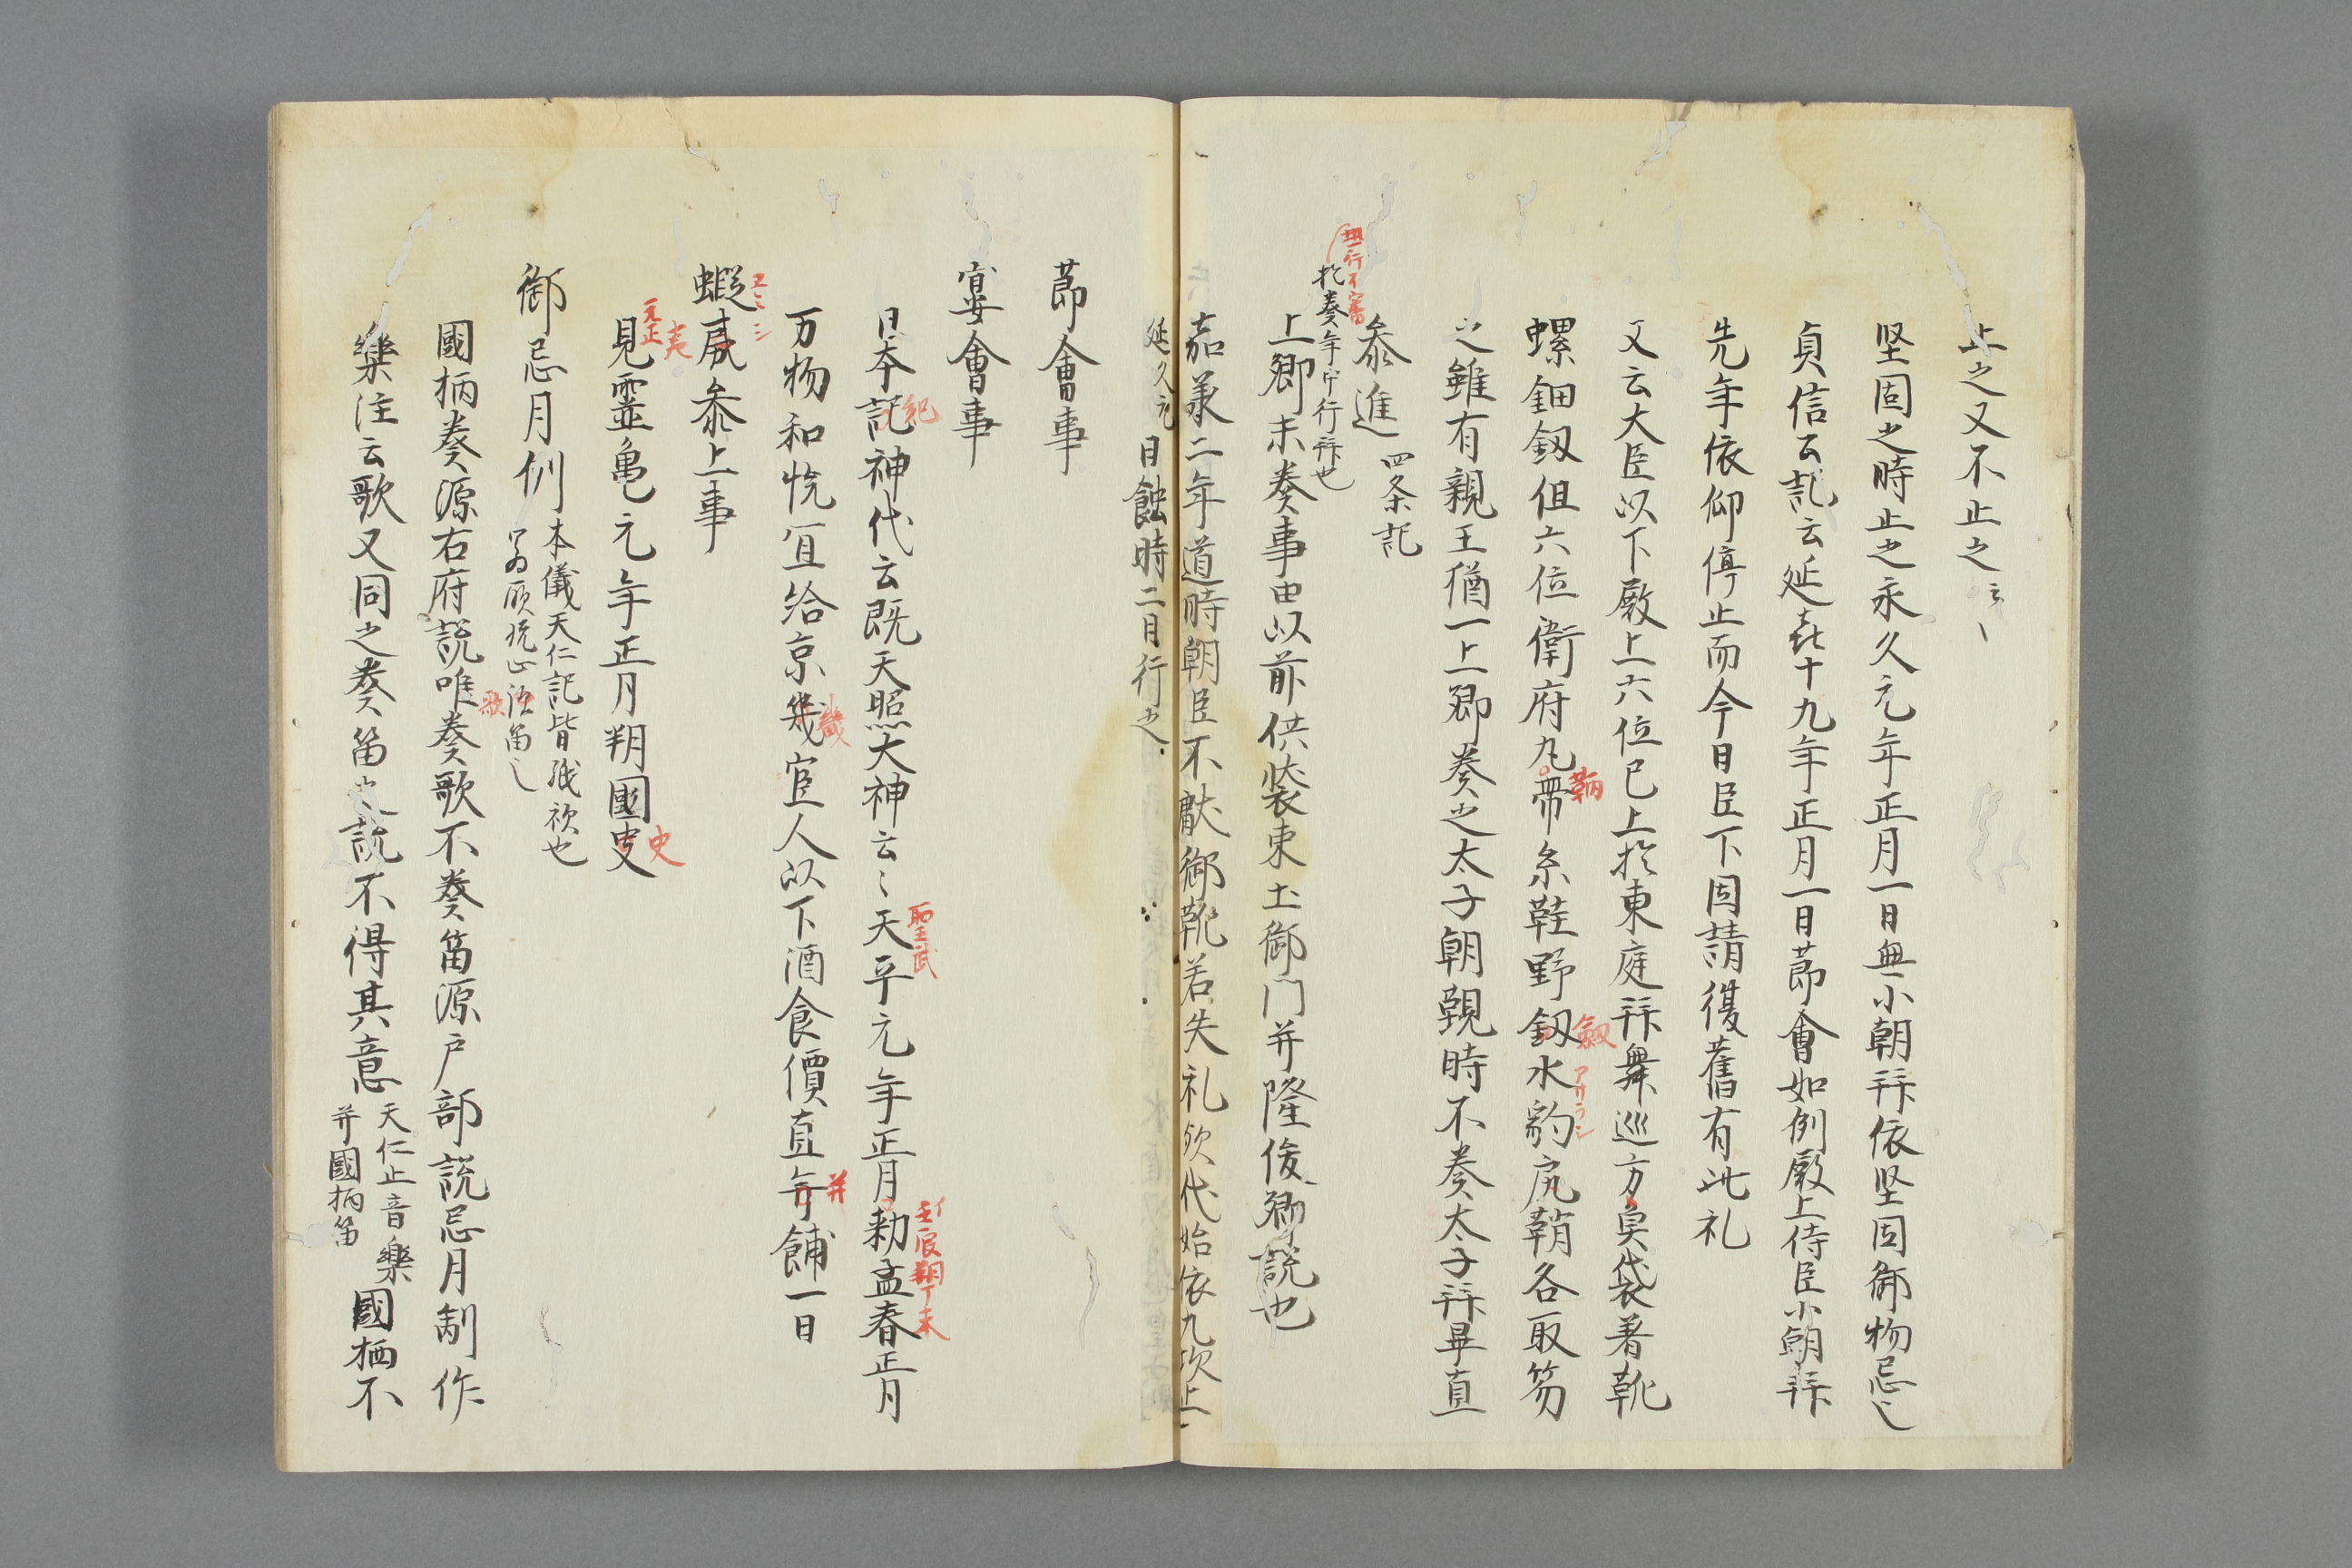 止之又不止之云々
坚固之時止之永久元年正月一日無小朝拜依坚固御物忌也
貞信公記云延㐂十九年正月一日莭會如例殿上侍臣小朝拜
先年依仰停止而今日臣下固請復舊有此礼
又云大臣以下殿上六位已上於東庭拜舞巡方魚袋著靴
螺鈿釼但六位衛府丸鞆帶糸鞋野釼劔水豹アサラシ尻鞘各取笏
之雖有親王猶一上卿奏之太子朝覲時不奏太子拜畢直
叅進 四条記
此一行不審
於奏年中行拜也
上卿未奏事由以前供装束土御门并隆俊卿説也
嘉承二年道時朝臣不獻御靴若失礼欤代始依九次上
延久元日蝕時二月行之
莭會事
宴會事
日本記紀神代云既天照大神云々天平聖武元年正月壬辰朔丁未勅孟春正月
万物和悦宜给京幾畿宦人以下酒食價直并餔一日
蝦夷エミシ叅上事
見霊亀元正元年正月朔國史
御忌月例 本儀天仁記皆紙被也
國栖奏源右府説唯奏歌不奏笛源户部説忌月制作
樂注云歌又同之奏笛之説不得其意 天仁止音樂并國栖笛 國栖不